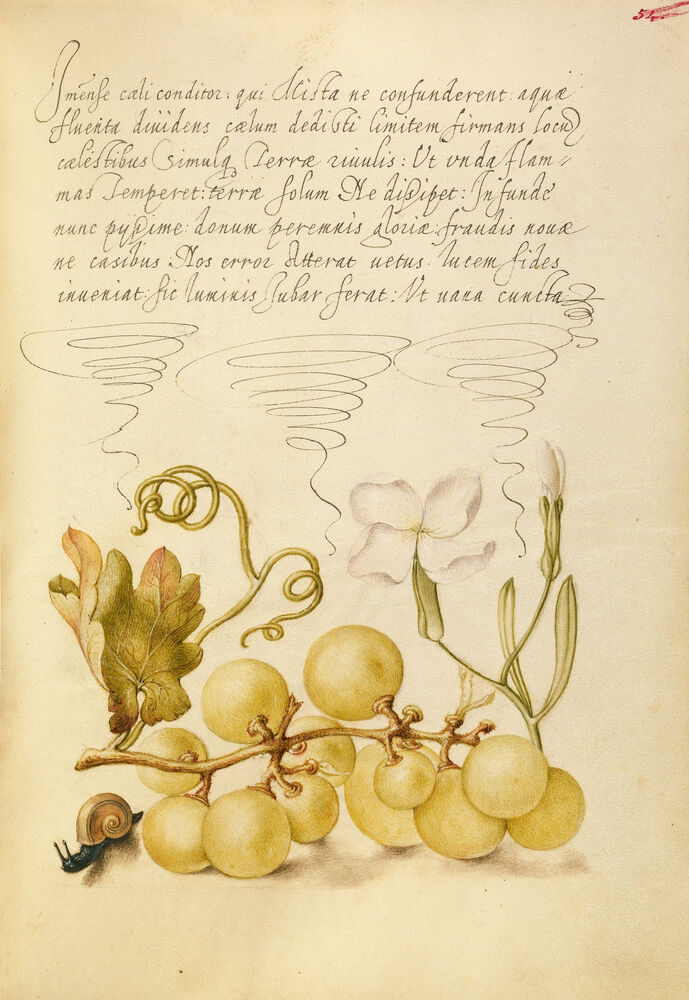 54
Imẽnse cæli conditor: qui Mista ne confunderent aquæ
fluenta diuidens cælum dedisti limitem firmans locũ
cælestibus Simulq Terræ riuulis: Ut vnda flam=
mas Temperet: terræ solum Ne dissipet: Infunde
nunc pyssime: donum peremnis gloriæ: fraudis nouæ
ne casibus Nos error Atterat uetus. lucem fides
inueniat: sic luminis Jubar ferat: Vt uana cuncta